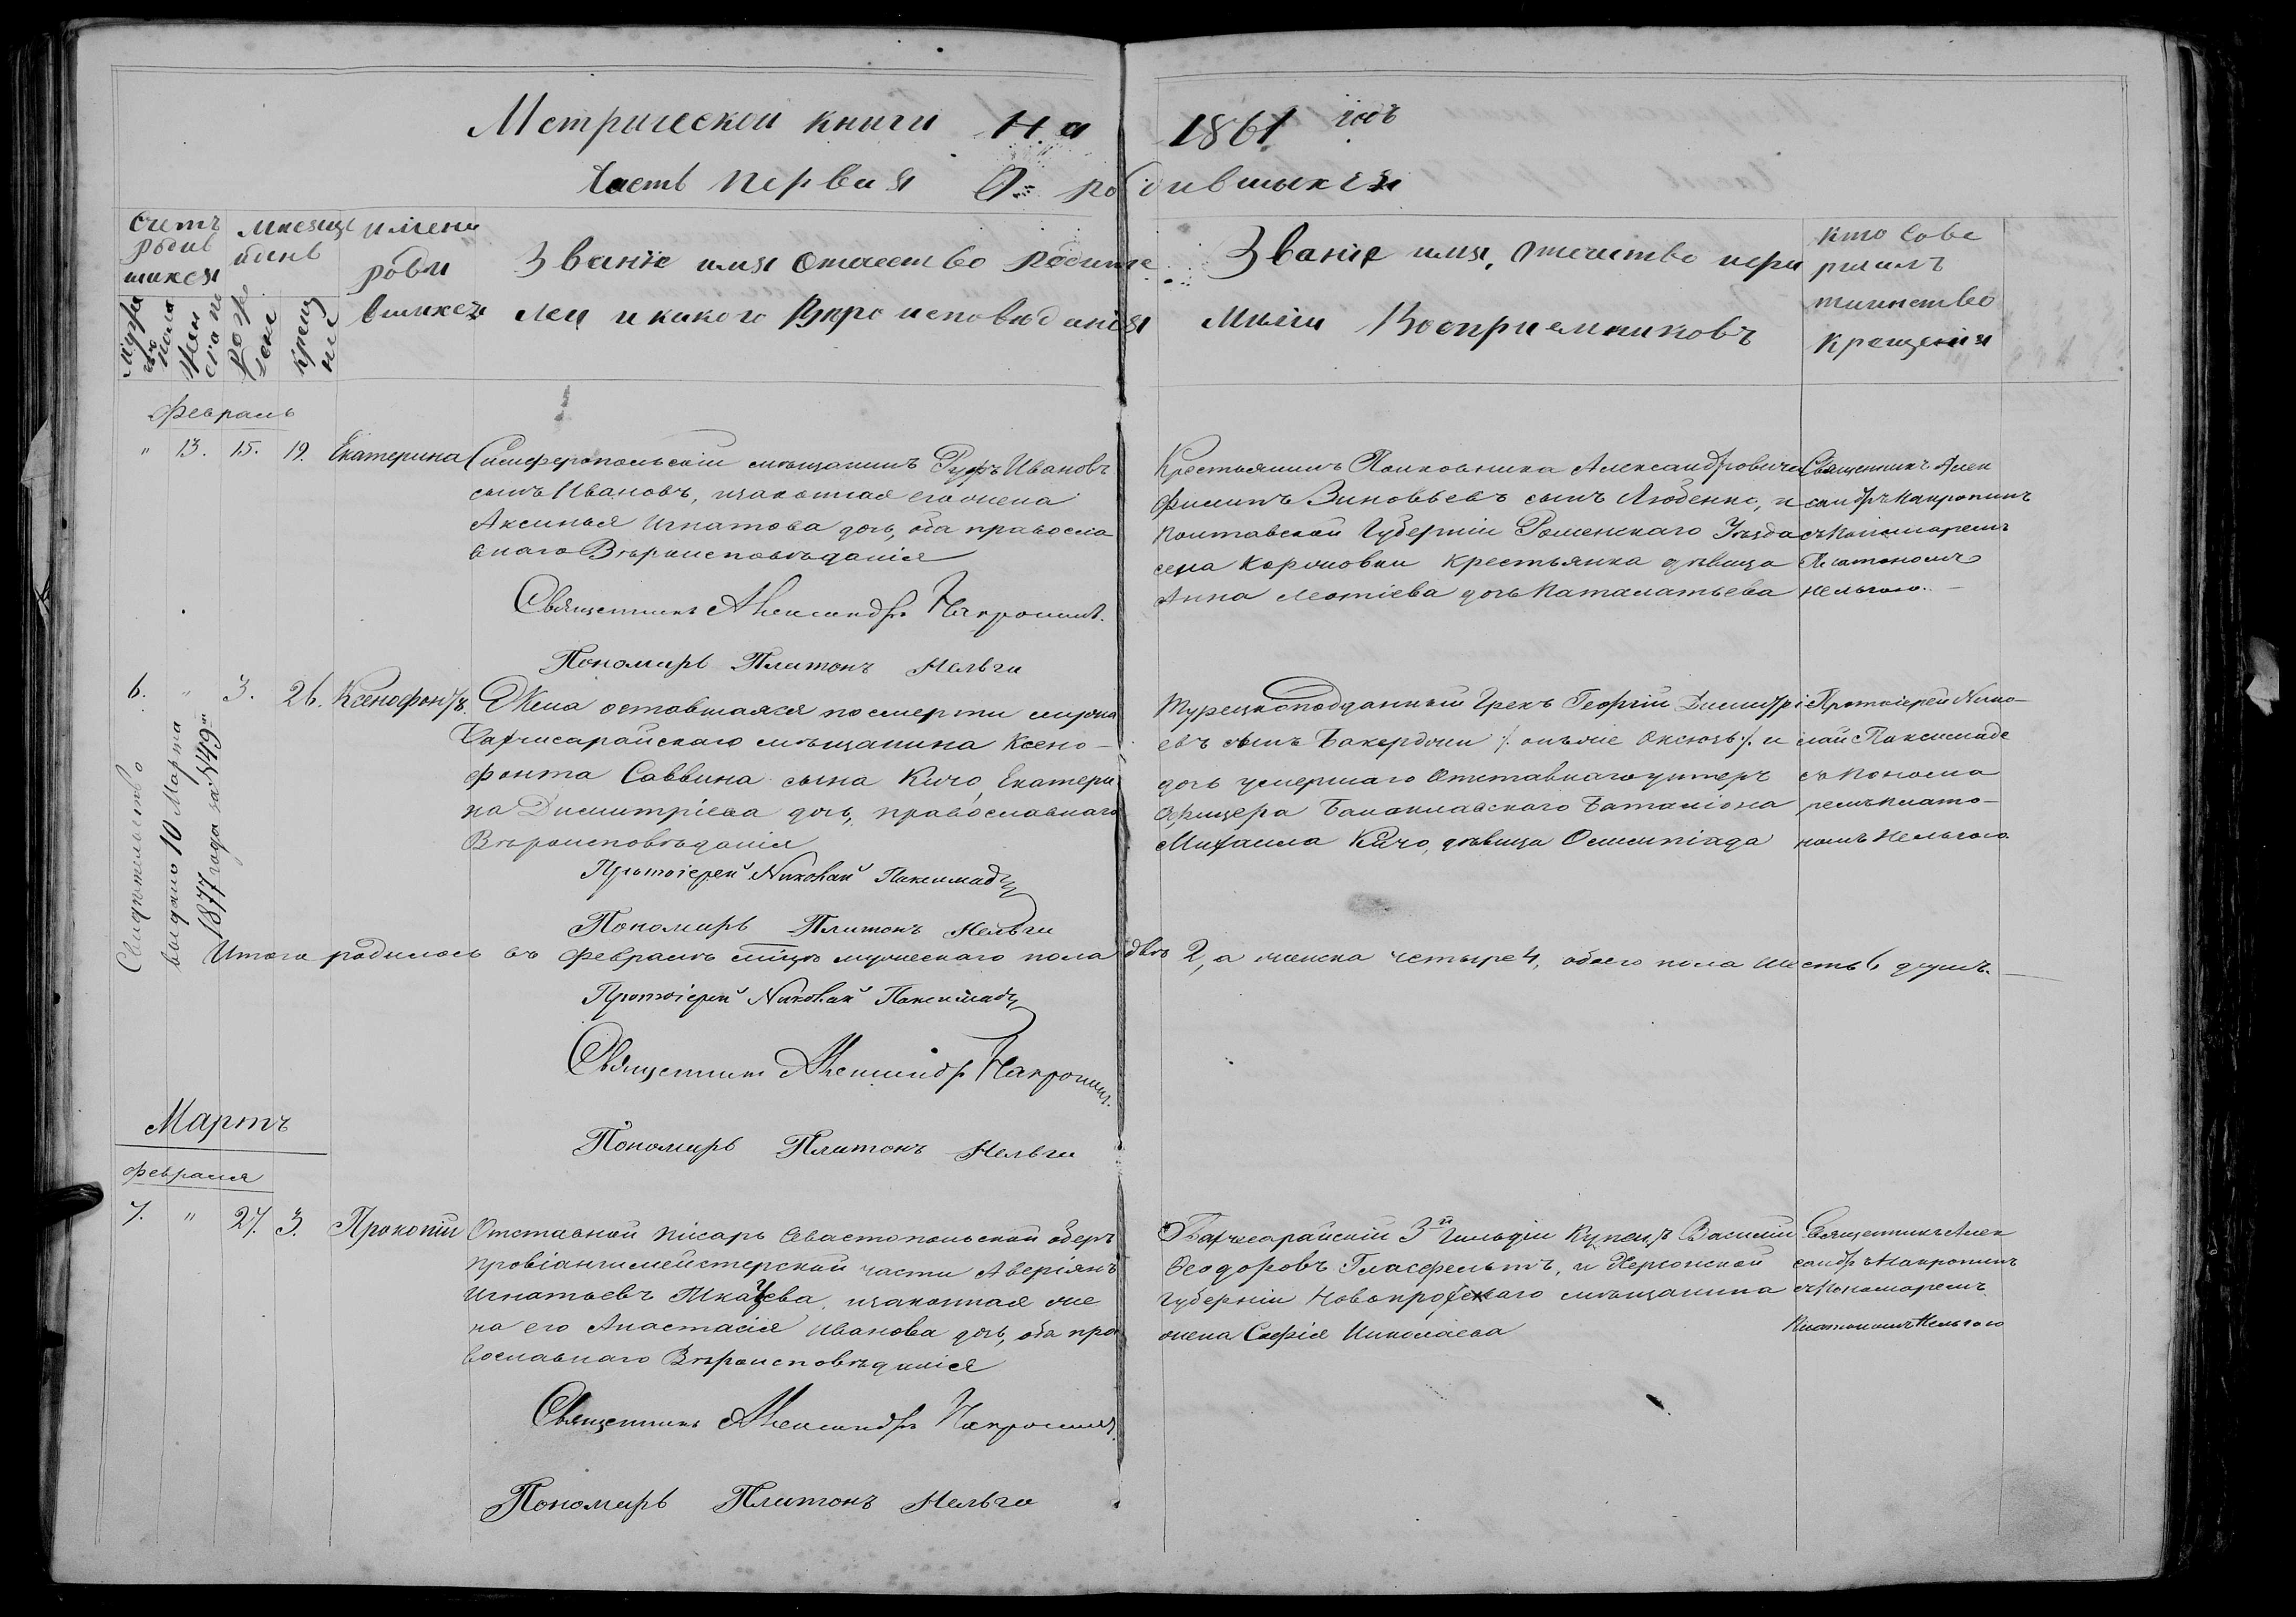 Метрической книги на 1861 годъ
Часть первая О родившихся
Счетъ родив шихся
мужеска пола
женскаго
месяцъ и день
рожденія
крещенія
имена родившихся
Званіе имя отчество родителей и какого вероисповѣданія
Званіе имя, отечество и фамилія Восприемниковъ
кто совершилъ таинство крещенія
Февраль
" 13. 15. 19. Екатерина
Симферопольскій мѣщанинъ Руфъ Ивановъ
сынъ Ивановъ, изаконная его жена
Аксинья Игнатова дочь, оба правосла
внаго Вѣроисповѣданія
Священникъ Александръ Накропинъ.
Пономарь Платонъ Нельга
Крестьянинъ Полковника Александровича
Филипъ Зиновьевъ сынъ Любенко, и
Полтавской Губерніи Роменскаго Уѣзда
села Коровинци крестьянка дѣвица
Анна Леонтіева дочь
Священникъ Алек
сандръ Накропинъ
съ Пономаремъ
Платономъ
Нельгою.
6. " 3. 26. Ксенофонтъ
Жена оставшаяся посмерти мужа
Бахчисарайскаго мѣщанина Ксено-
фонта Саввина сына Кичо, Екатери
на Димитріева дочь, православнаго
Вѣроисповѣданія
Протоіерей Николай Паксимади
Пономарь Платонъ Нельга
Турецкоподданный Грекъ Георгій Димитрі
евъ сынъ Бакерджи /: онъ же Оксюзъ :/ и
дочь умершаго Отставнаго унтеръ
Офицера Балаклавскаго Баталіона
Михаила Кичо, дѣвица Олимпіада
Протоіерей Нико-
лай Паксимаде
съ Понома
ремъ Плато-
номъ Нельгою
Свидѣтельство
выдано 10 Марта
1877 года за № 49-м
Итого родилось въ Февралѣ мцѣ мужескаго пола двѣ 2, а женска четыре 4, обоего пола шесть 6 душъ.
Протоіерей Николай Паксимади
Священникъ Александръ Накропинъ.
Пономарь Платонъ Нельга
Мартъ
Февраля
7. " 27. 3. Прокопій
Отставной писарь Севастопольской оберъ
провіантмейстерской части Аверіянъ
Игнатьевъ Ткачева, изаконная же
на его Анастасія Иванова дочь, оба пра
вославнаго Вѣроисповѣданія
Священникъ Александръ Накропинъ.
Пономарь Платонъ Нельга
Бахчесарайскій 3й Гильдіи Купецъ Василій
Феодоровъ Гласфельтъ, и Херсонской
Губерніи мѣщанина
жена Софія Николаева
Священникъ Алек
сандръ Накропинъ
съ Пономаремъ
Платономъ Нельгою